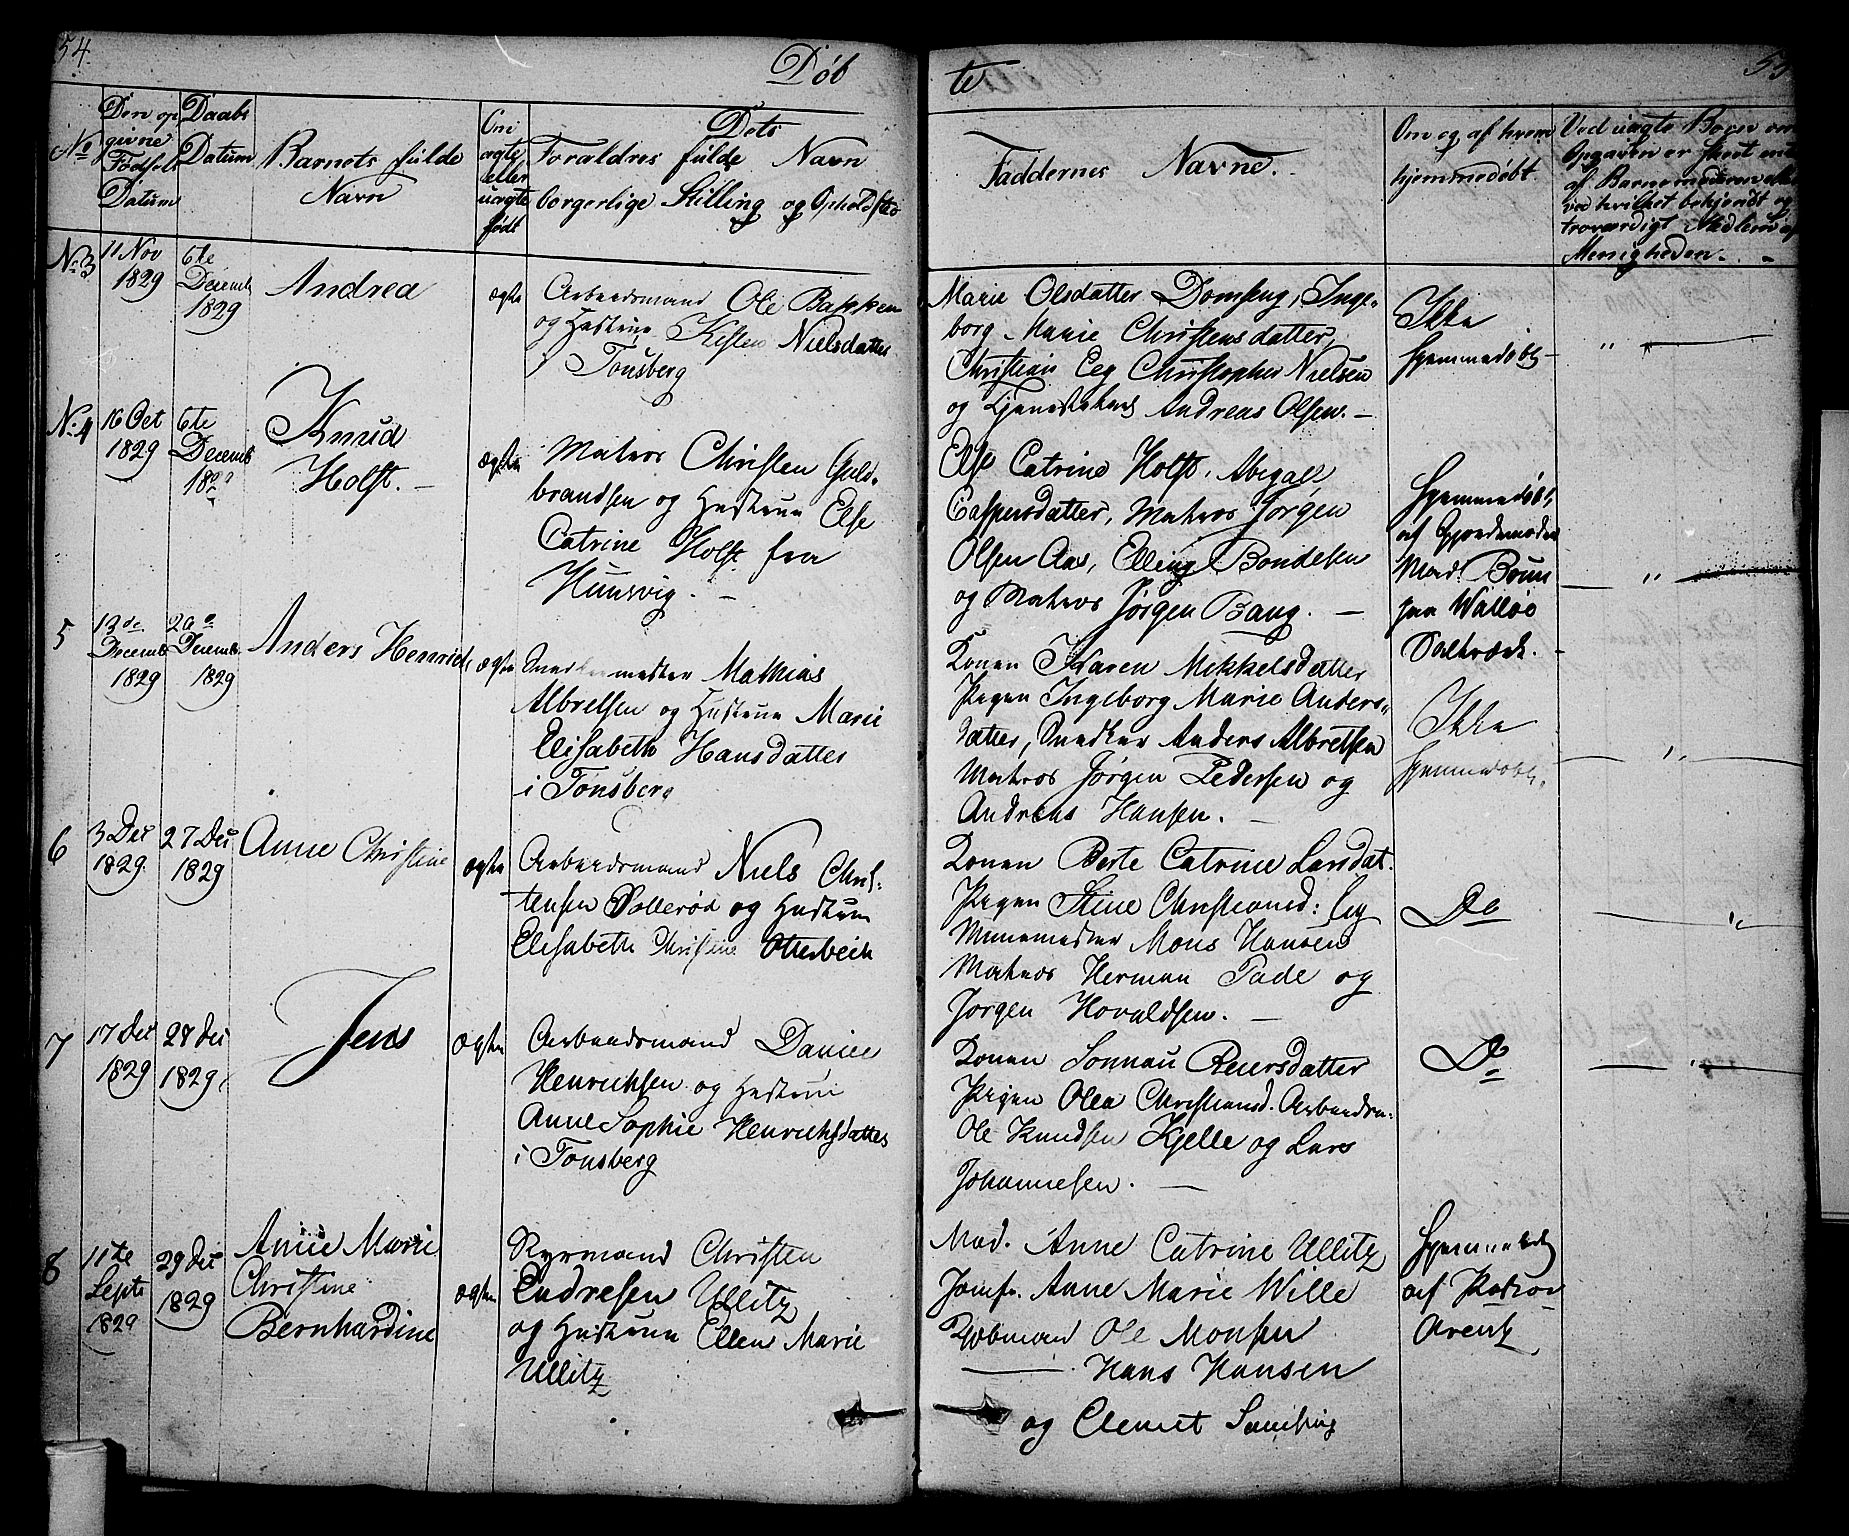 54.
Døb
No
Den op
givne
Fødsels
Datum
Daabs
Datum
Barnets fulde
Navn
Om
ægte
eller
uægte
født
Dets
Forældres fulde Navn
borgerlige Stilling og Opholdsted
No 3
11 Nov
1829
6te
Decemb
1829
Andrea
ægte
Arbeidsmand Ole Bakken
og Hustrue Kisten Nielsdatter
i Tönsberg
No 4
16 Oct
1829
6te
Decemb
1829
Knud
Holst. —
ægte
Matros Christen Guld-
brandsen og Hustrue Else
Catrine Holst fra
Huusvig. —
5
13de
Decemb
1829
20
Decemb.
1829
Anders Henrich
ægte
Snedkermester Mathias
Albretsen og Hustrue Marie
Elisabeth Hansdatter
i Tönsberg
6
3 Dec
1829.
27 Dec
1829
Anne Christine
ægte
Arbeidsmand Niels Chris-
tensen Sollerød og Hustrue
Elisabeth Christine Otterbeck
7
17 Dec
1829
28 Dec
1829.
Jens
ægte
Arbeidsmand Daniel
Henrichsen og Hustrue
Anne Sophie Henrichsdatter
i Tonsberg
8
11te
Septe
1829
29 Dec
1829
Anne Marie
Christine
Bernhardine
ægte
Styrmand Christen
Endresen Ullitz
og Hustrue Ellen Marie
Ullitz
te
55
Faddernes Navne.
Om og af hvem
hjemmedøbt
Ved uægte Børn om
Opgaven er skeet
af Barnemoderen eller
ved hvilket bekjendt og
troværdigt Medlem af
Menigheden. -
Marie Olsdatter Domseng, Inge-
borg Marie Christensdatter,
Christian Eeg Christopher Nielsen
og Tjenestekarl Andreas Olsen. —
Ikke
hjemmedøbt -
" —
Else Catrine Holst, Abigael
Caspersdatter, Matros Jørgen
Olsen Aas, Elling Bondesen
og Matros Jørgen Bang. —
Hjemmedøbt
af Gjordemoder
Mad. Bruun
paa Walløe
Saltværk.
— " —
Konen Karen Mikkelsdatter
Pigen Ingeborg Marie Anders-
datter, Snedker Anders Albretsen
Matros Jørgen Pedersen og
Andreas Hansen. —
Ikke
hjemmedøbt.
— " —
Konen Berte Catrine Larsdat.
Pigen Stine Christiansd: Eeg
Muurmester Mons Hansen
Matros Herman Tade og
Jørgen Hovaldsen. —
Do
— "
Konen Sonnau Reiersdatter
Pigen Olea Christiansd. Arbeidsm:
Ole Knudsen Kjelle og Lars
Johannesen. —
Do
— " —
Mad. Anne Catrine Ullitz
Jomfr. Anne Marie Wille
Kobmand Ole Monsen
— Hans Hansen
og Clemet
Hjemmedøbt
af Pastor
Arentz